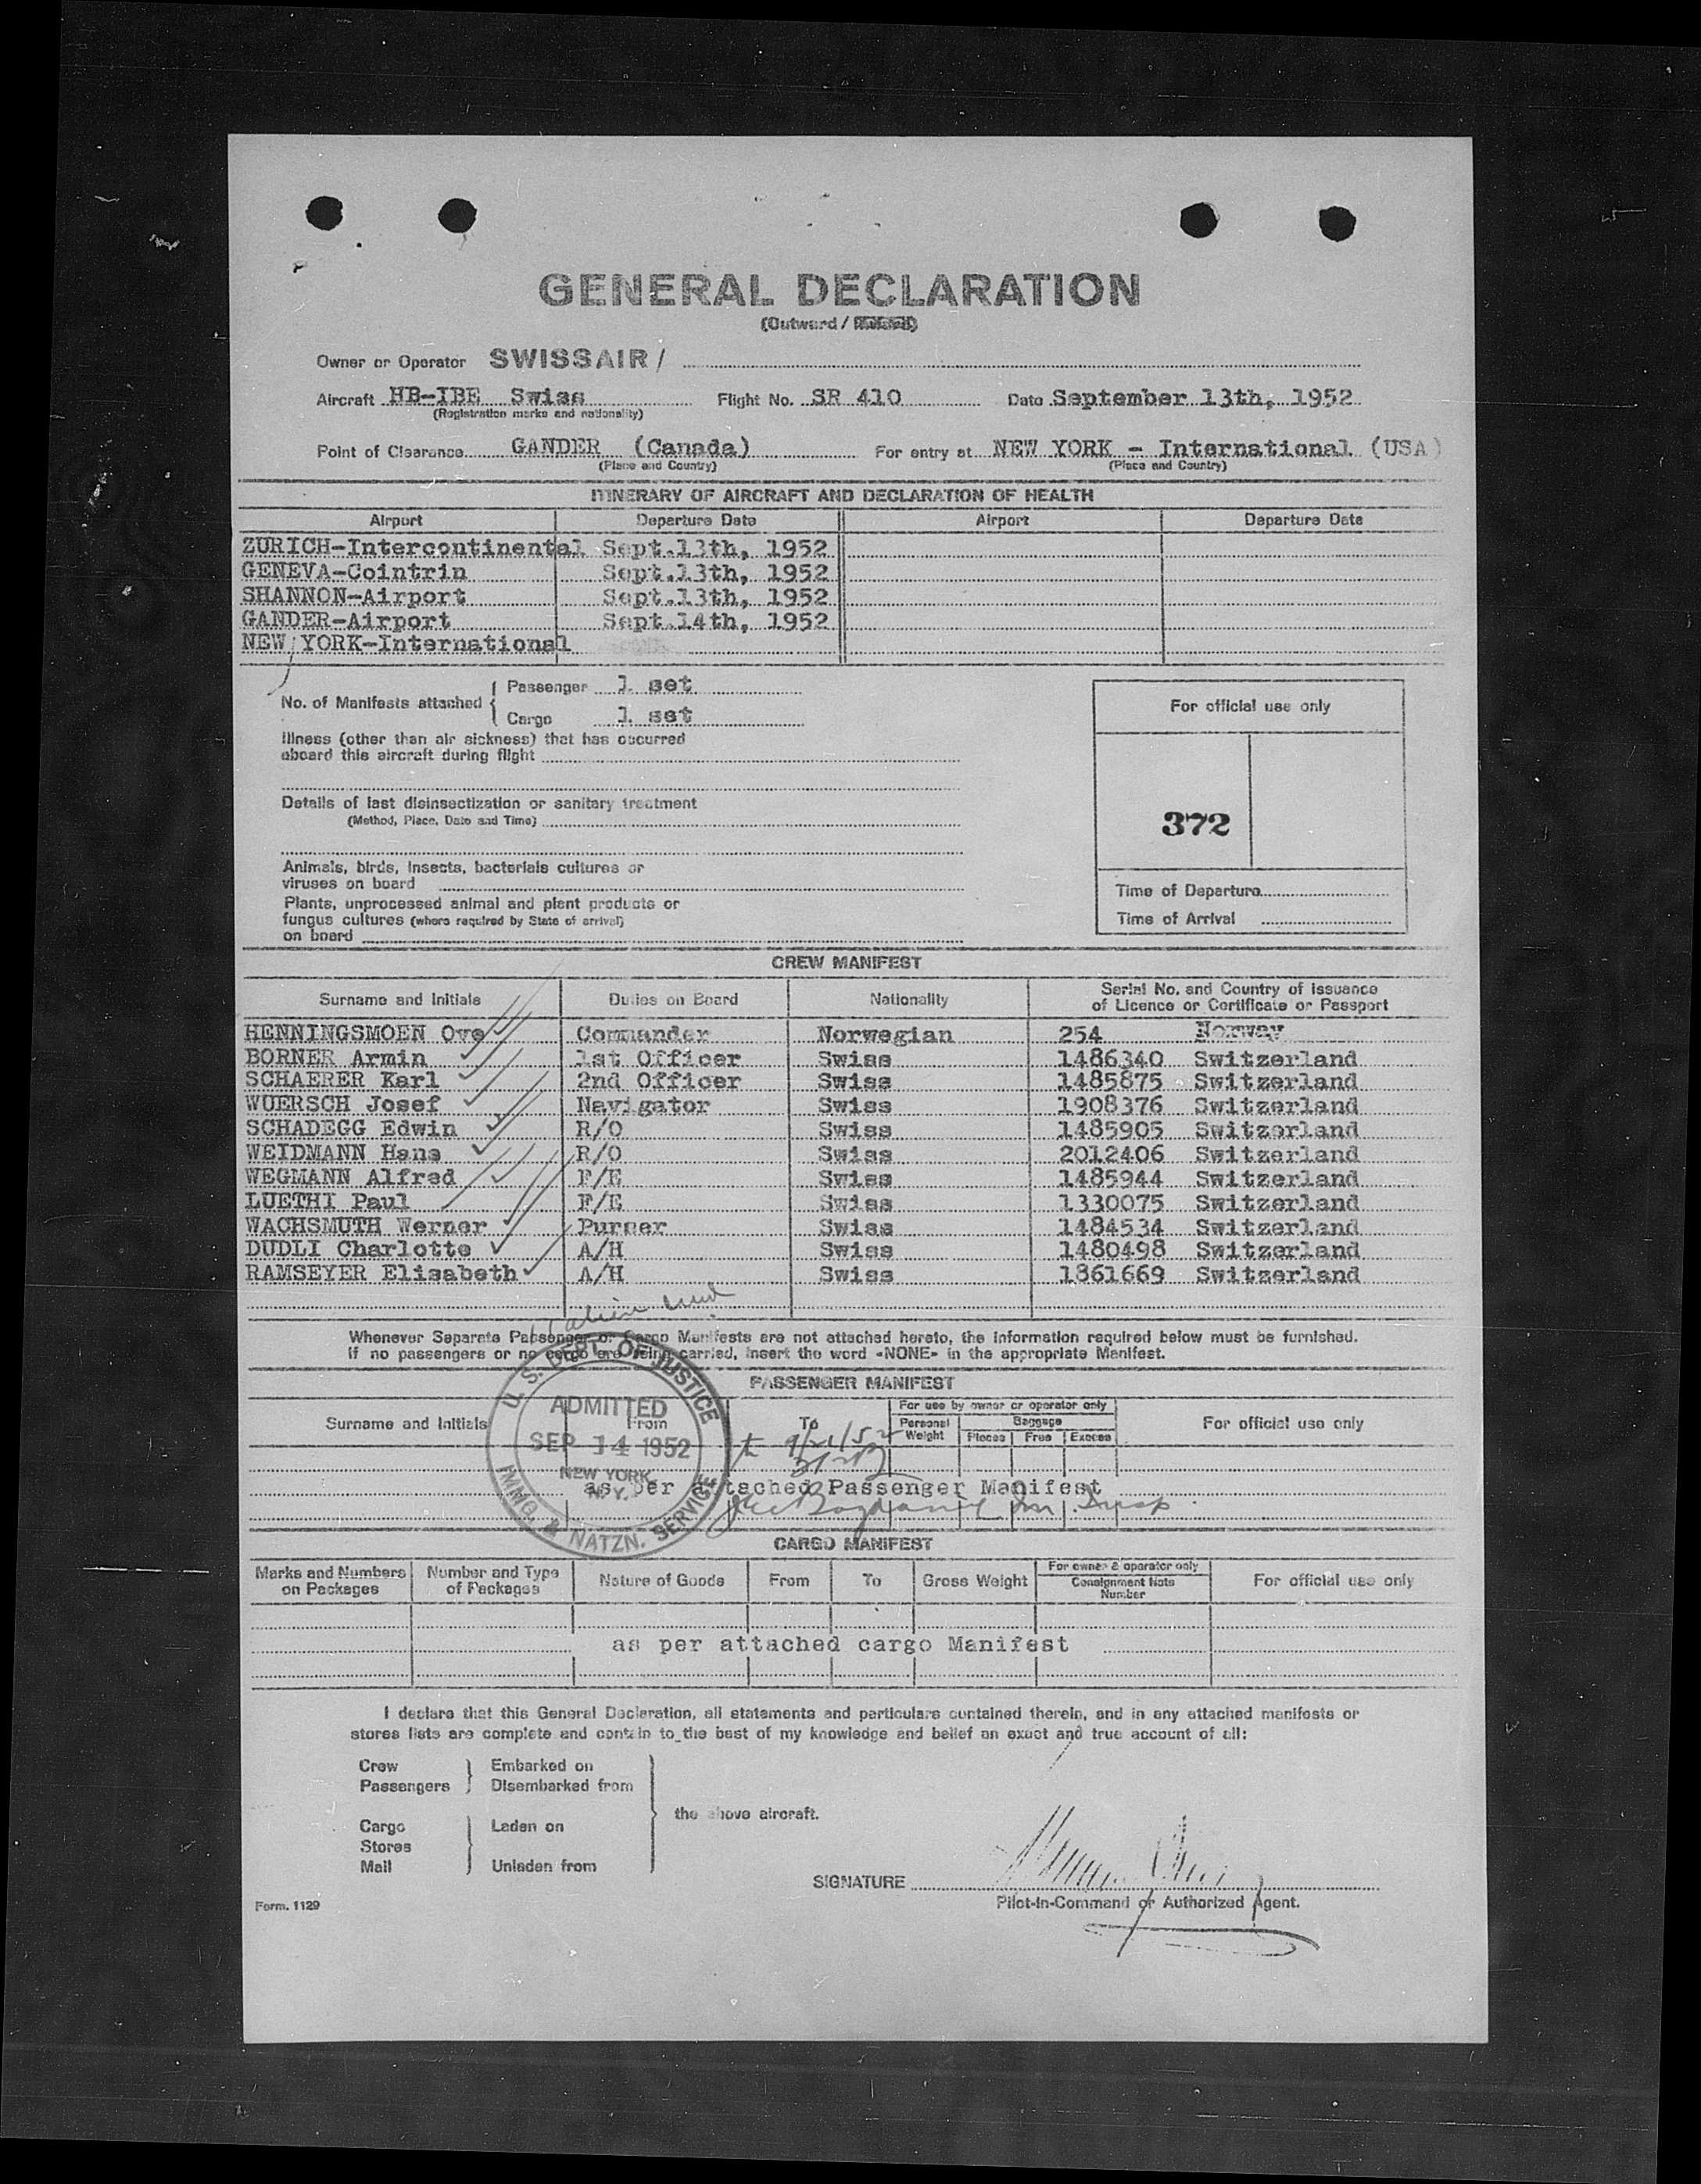 GENERAL DECLARATION
(Outward /
Owner or Operator SWISSAIR /
Aircraft HB-IBE Swiss Flight No. SR 410 Date September 13th, 1952
(Registration marks and nationality)
Point of Clearance GANDER (Canada) For entry at NEW YORK - International (USA)
(Place and Country) (Place and Country)
ITINERARY OF AIRCRAFT AND DECLARATION OF HEALTH
Airport Departure Date Airport Departure Date
ZURICH-Intercontinental Sept.13th, 1952
GENEVA-Cointrin Sept.13th, 1952
SHANNON-Airport Sept.13th, 1952
GANDER-Airport Sept.14th, 1952
NEW YORK-International
No. of Manifests attached { Passenger 1 set
Cargo 1 set
For official use only
Illness (other than air sickness) that has occurred
aboard this aircraft during flight
Details of last disinsectization or sanitary treatment
(Method, Place, Date and Time)
372
Animals, birds, insects, bacterials cultures or
viruses on board
Plants, unprocessed animal and plant products or
fungus cultures (where required by State of arrival)
on board
Time of Departure
Time of Arrival
CREW MANIFEST
Surname and Initials Duties on Board Nationality Serial No. and Country of issuance
of Licence or Certificate or Passport
HENNINGSMOEN Ove Commander Norwegian 254 Norway
BORNER Armin 1st Officer Swiss 1486340 Switzerland
SCHAERER Karl 2nd Officer Swiss 1485875 Switzerland
WUERSCH Josef Navigator Swiss 1908376 Switzerland
SCHADEGG Edwin R/O Swiss 1485905 Switzerland
WEIDMANN Hans R/O Swiss 2012406 Switzerland
WEGMANN Alfred F/E Swiss 1485944 Switzerland
LUETHI Paul F/E Swiss 1330075 Switzerland
WACHSMUTH Werner Purser Swiss 1484534 Switzerland
DUDLI Charlotte A/H Swiss 1480498 Switzerland
RAMSEYER Elisabeth A/H Swiss 1861669 Switzerland
Whenever Separate Passenger or Cargo Manifests are not attached hereto, the information required below must be furnished.
If no passengers or no cargo are being carried, insert the word «NONE» in the appropriate Manifest.
PASSENGER MANIFEST
Surname and Initials From To For use by owner or operator only For official use only
Personal Weight Baggage
Pieces Free Excess
U. S. DEPT. OF JUSTICE
ADMITTED
SEP 14 1952
NEW YORK,
N. Y.
IMMG. & NATZN. SERVICE
as per attached Passenger Manifest
CARGO MANIFEST
Marks and Numbers on Packages Number and Type of Packages Nature of Goods From To Gross Weight For owner & operator only For official use only
Consignment Note Number
as per attached cargo Manifest
I declare that this General Declaration, all statements and particulars contained therein, and in any attached manifests or
stores lists are complete and contain to the best of my knowledge and belief an exact and true account of all:
Crew Embarked on
Passengers Disembarked from
the above aircraft.
Cargo Laden on
Stores
Mail Unladen from
SIGNATURE
Pilot-in-Command or Authorized Agent.
Form. 1129